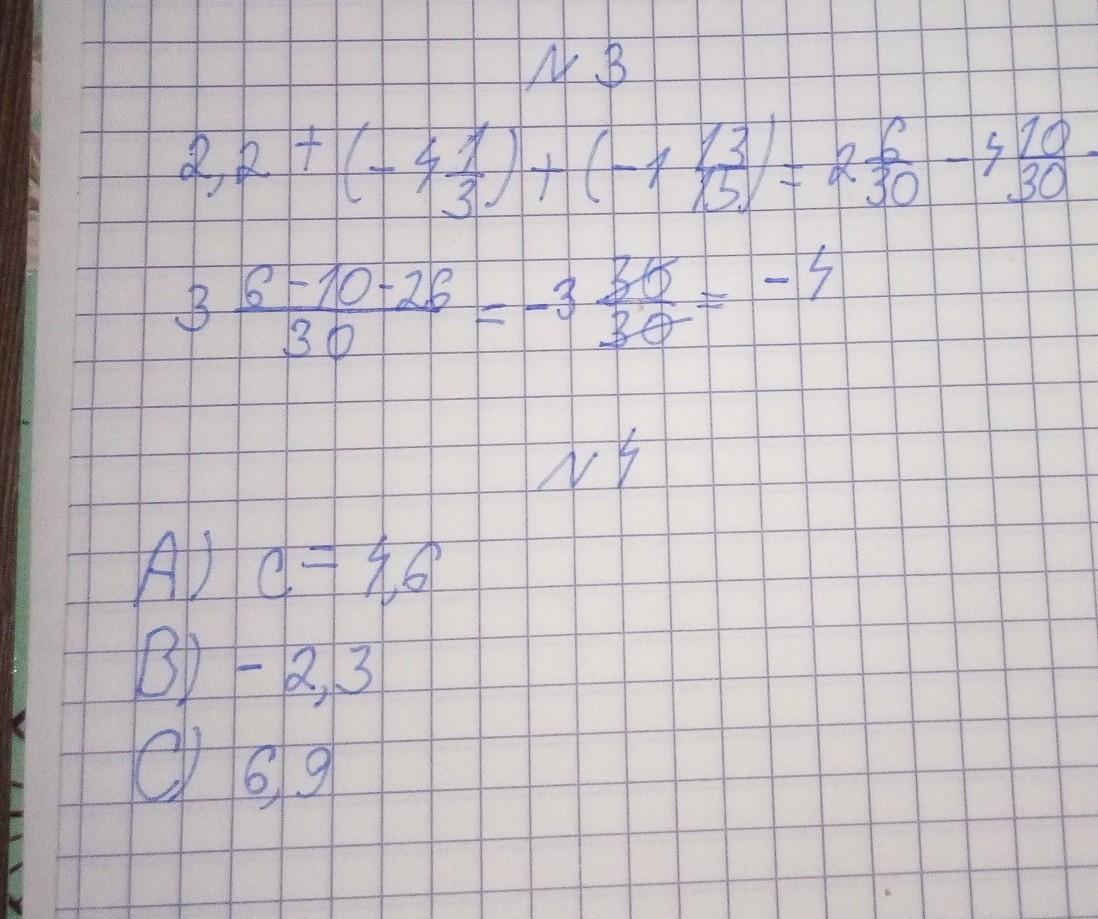 N 3
2,2 + (-4 1/3) + (-1 13/15) = 2 6/30 - 4 10/30 -
3 6-10-26/30 = -3 30/30 = -4
N 4
A) c = 4,6
B) -2,3
C) 6,9